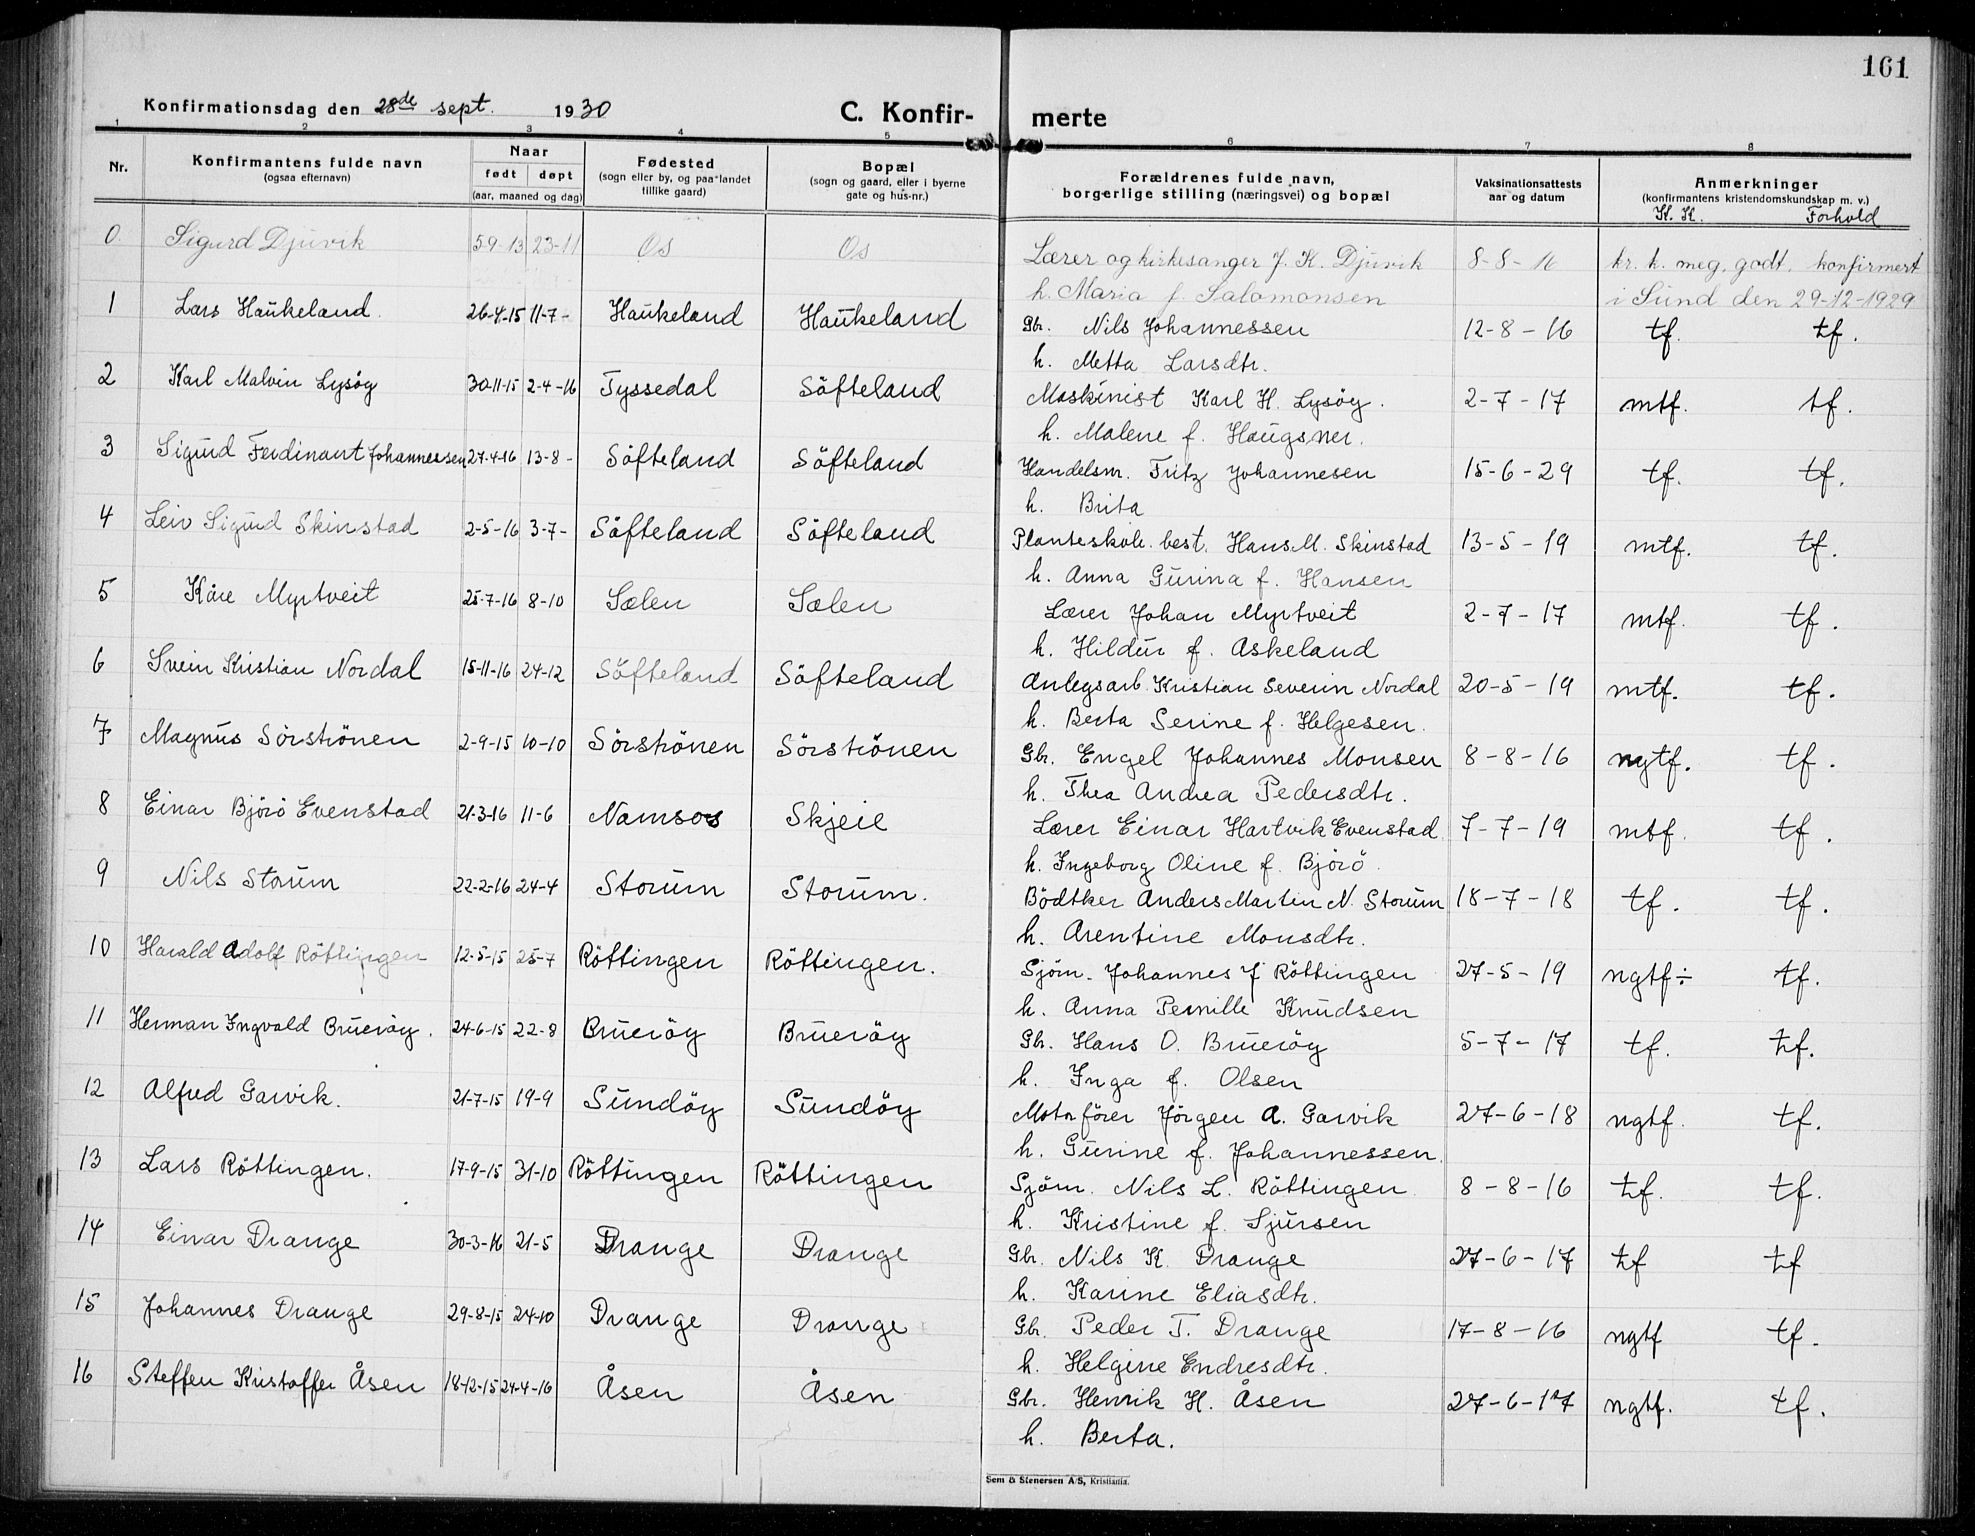 161
Konfirmationsdag den 28de sept. 1930 C. Konfir- merte
1 2 3 4 5 6 7 8
Nr. Konfirmantens fulde navn (ogsaa efternavn) Naar født døpt (aar, maaned og dag) Fødested (sogn eller by, og paa landet tillike gaard) Bopæl (sogn og gaard, eller i byerne gate og hus-nr.) Forældrenes fulde navn, borgerlige stilling (næringsvei) og bopæl Vaksinationsattests aar og datum Anmerkninger (konfirmantens kristendomskundskap m. v.) K. K. Forhold
0 Sigurd Djuvik 5-9-13 23-11 Os Os Lærer og kirkesanger J. K. Djuvik 8-8-16 kr. k. meg. godt. konfirmert
h. Maria f. Salomonsen i Sund den 29-12-1929
1 Lars Haukeland. 26-4-15 11-7- Haukeland Haukeland Gbr. Nils Johannessen 12-8-16 tf. tf.
h. Metta Larsdtr.
2 Karl Malvin Lysöy 30-11-15 2-4-16 Tyssedal Söfteland Maskinist Karl H. Lysöy. 2-7-17 mtf. tf.
h. Malene f. Haugsner.
3 Sigurd Ferdinant Johannessen 27-4-16 13-8- Söfteland Söfteland Handelsm. Fritz Johannesen 15-6-29 tf. tf.
h. Brita
4 Leiv Sigurd Skinstad 2-5-16 3-7- Söfteland Söfteland Planteskole.best. Hans M. Skinstad 13-5-19 mtf. tf.
h. Anna Gurina f. Hansen
5 Kåre Myrtveit 25-7-16 8-10 Sælen Sælen Lærer Johan Myrtveit 2-7-17 mtf. tf.
h. Hildur f. Askeland
6 Svein Kristian Nordal 15-11-16 24-12 Söfteland Söfteland Anlegsarb. Kristian Severin Nordal 20-5-19 mtf. tf.
h. Berta Serine f. Helgesen.
7 Magnus Sörströnen 2-9-15 10-10 Sörströnen Sörströnen Gbr. Engel Johannes Monsen 8-8-16 ngtf. tf.
h. Thea Andrea Pedersdtr.
8 Einar Björö Evenstad 21-3-16 11-6 Namsos Skjeie Lærer Einar Hartvik Evenstad 7-7-19 mtf. tf.
h. Ingeborg Oline f. Björö
9 Nils Storum 22-2-16 24-4 Storum Storum. Bödtker Anders Martin N. Storum 18-7-18 tf. tf.
h. Arentine Monsdtr.
10 Harald Adolf Röttingen 12-5-15 25-7 Röttingen Röttingen. Sjöm. Johannes J Röttingen 27-5-19 ngtf÷ tf.
h. Anna Pernille Knudsen
11 Herman Ingvald Brueröy. 24-6-15 22-8 Brueröy Brueröy Gbr. Hans O. Brueröy 5-7-17 tf. tf.
h. Inga f. Olsen
12 Alfred Garvik. 21-7-15 19-9 Sundöy Sundöy Motorförer Jörgen A. Garvik 27-6-18 ngtf. tf.
h. Gurine f. Johannessen.
13 Lars Röttingen. 17-9-15 31-10 Röttingen Röttingen Sjöm. Nils L. Röttingen 8-8-16 tf. tf.
h. Kristine f. Sjursen
14 Einar Drange 30-3-16 21-5 Drange Drange Gbr. Nils K. Drange 27-6-17 tf tf
h. Karine Eliasdtr.
15 Johannes Drange 29-8-15 24-10 Drange Drange Gbr. Peder T. Drange 17-8-16 ngtf tf.
h. Helgine Endresdtr.
16 Steffen Kristoffer Åsen 18-12-15 24-4-16 Åsen Åsen Gbr. Henrik H. Åsen 27-6-17 ngtf. tf.
h. Berta.
Sem & Stenersen A/S, Kristiania.